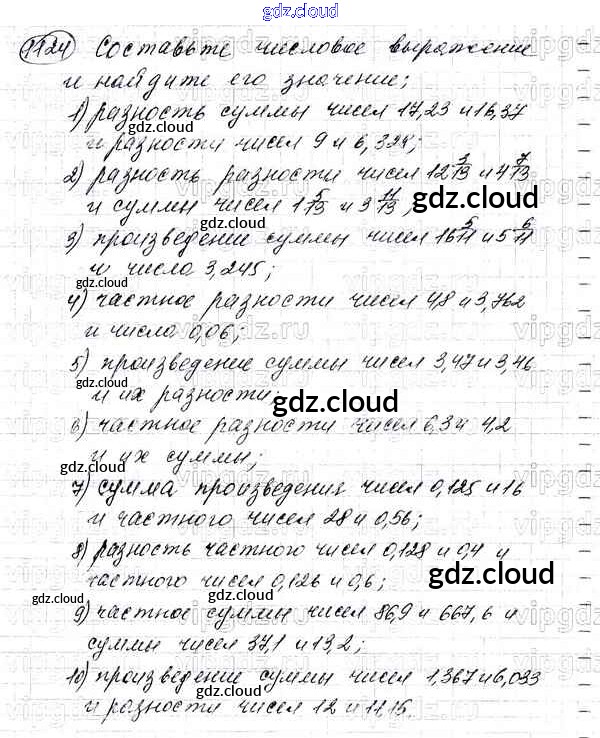 gdz.cloud
1124 Составьте числовое выражение
и найдите его значение;
1) разность суммы чисел 17,23 и 16,37
и разности чисел 9 и 6,324;
2) разность разности чисел 12 3/13 и 4 7/13
и суммы чисел 1 5/13 и 3 11/13;
3) произведение суммы чисел 16 5/11 и 5 6/11
и число 3,245;
4) частное разности чисел 4,8 и 3,762
и числа 0,06;
5) произведение суммы чисел 3,47 и 3,46
и их разности;
6) частное разности чисел 6,3 и 4,2
и их суммы;
7) сумма произведения чисел 0,125 и 16
и частного чисел 28 и 0,56;
8) разность частного чисел 0,128 и 0,4 и
частного чисел 0,126 и 0,6;
9) частное суммы чисел 86,9 и 667,6 и
суммы чисел 37,1 и 13,2;
10) произведение суммы чисел 1,367 и 6,033
и разности чисел 12 и 11,15.
gdz.cloud